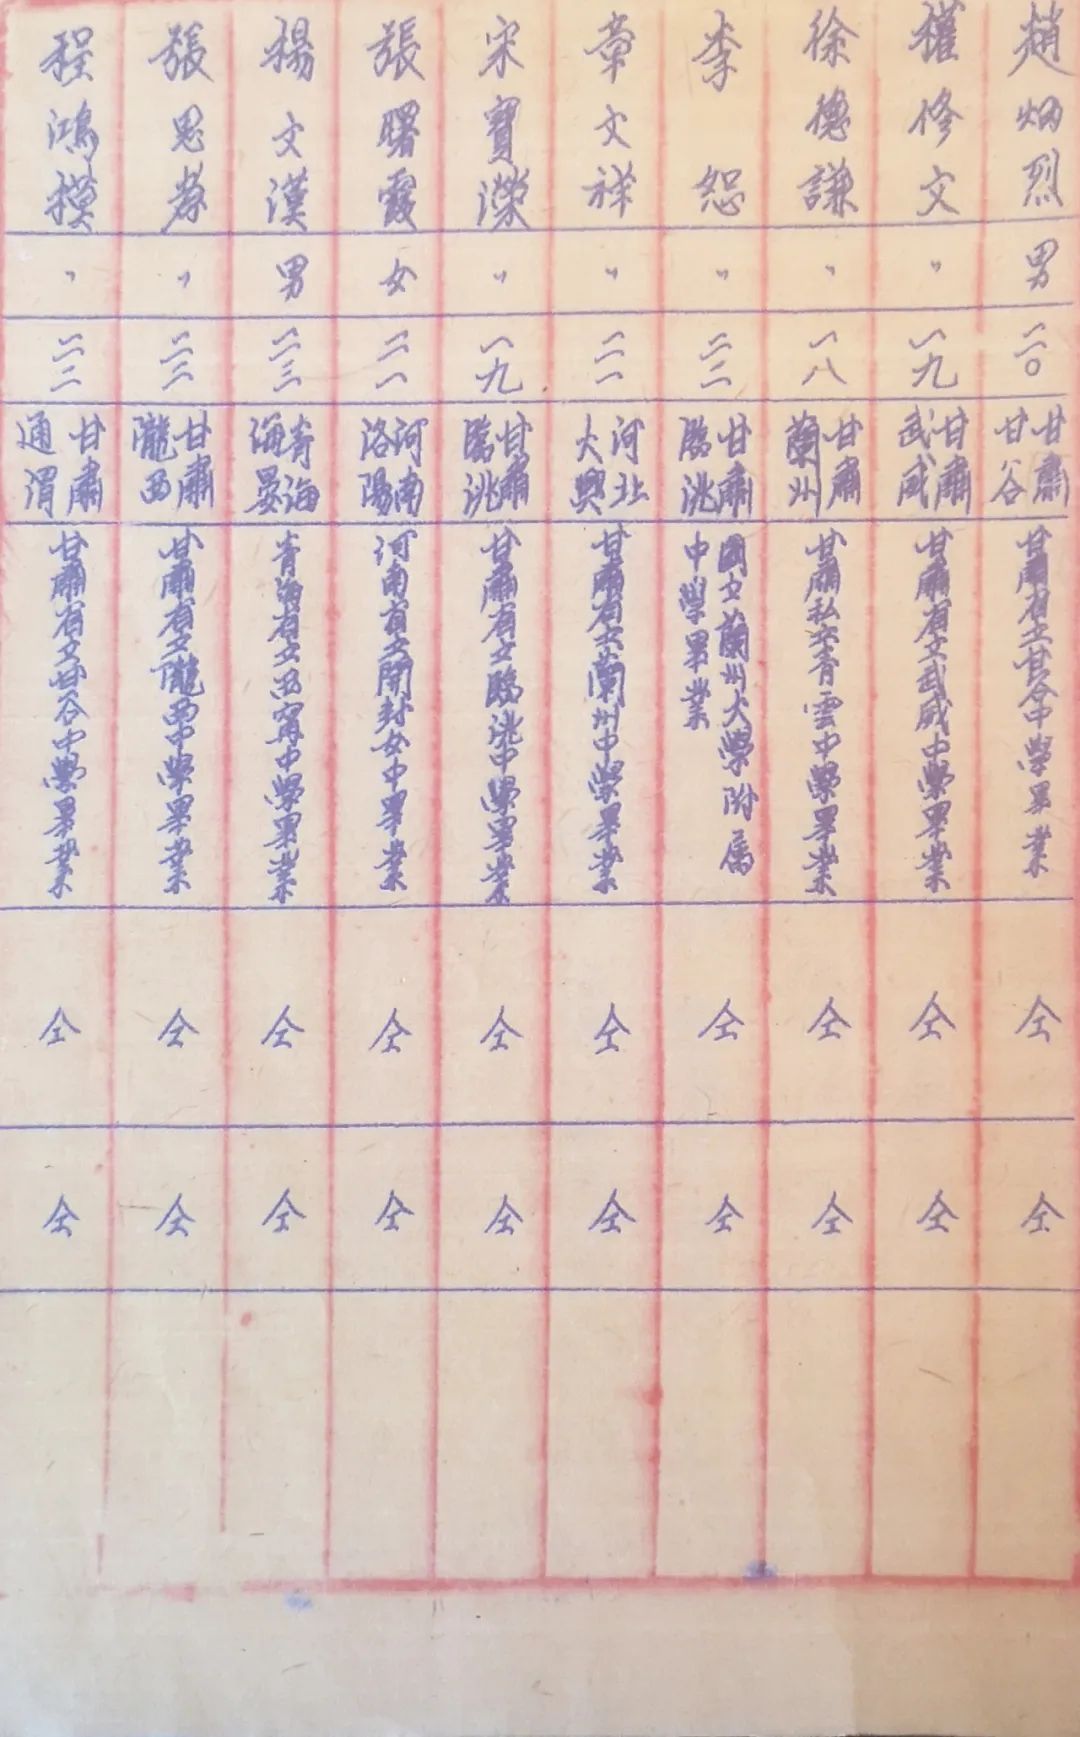 趙炳烈 男 二〇 甘肅甘谷 甘肅省立甘谷中學畢業 仝 仝
權修文 〃 一九 甘肅武威 甘肅省立武威中學畢業 仝 仝
徐德謙 〃 一八 甘肅蘭州 甘肅私立青雲中學畢業 仝 仝
李恕 〃 二二 甘肅臨洮 國立蘭州大學附属中學畢業 仝 仝
章文祥 〃 二一 河北大興 甘肅省立蘭州中學畢業 仝 仝
宋寶濚 〃 一九 甘肅臨洮 甘肅省立臨洮中學畢業 仝 仝
張曙霞 女 二一 河南洛陽 河南省立開封女中畢業 仝 仝
楊文漢 男 二三 青海海晏 青海省立西寧中學畢業 仝 仝
張思 〃 二二 甘肅隴西 甘肅省立隴西中學畢業 仝 仝
程鴻模 〃 二二 甘肅通渭 甘肅省立甘谷中學畢業 仝 仝